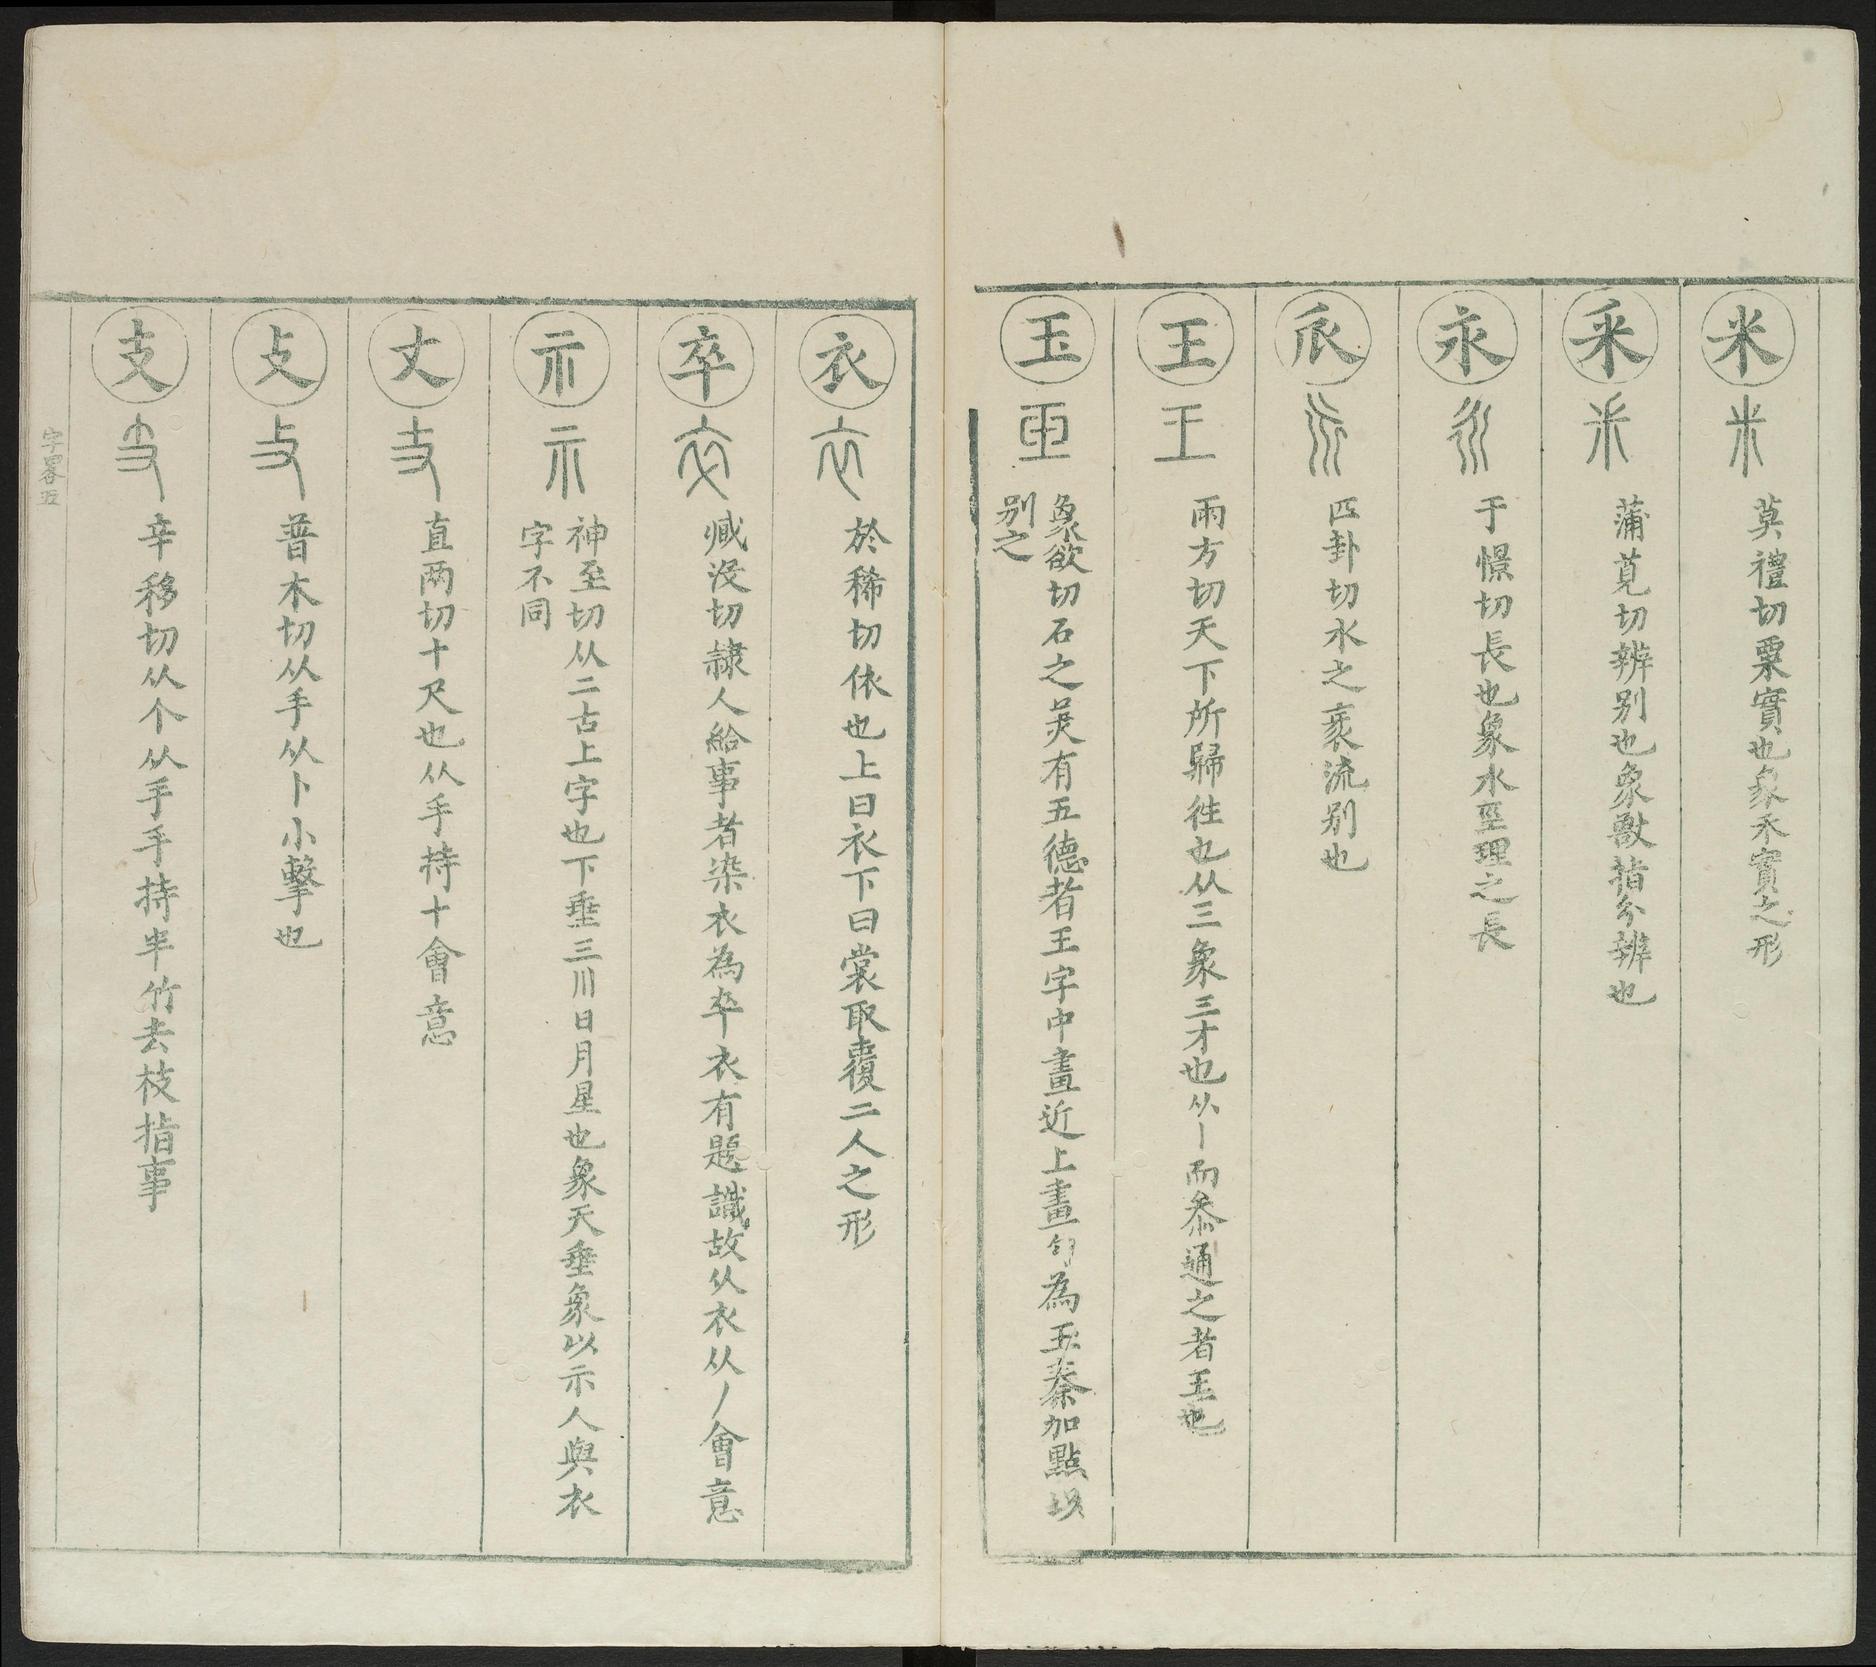 米 莫禮切粟實也象禾實之形
釆 蒲莧切辨别也象獸指分辨也
永 于憬切長也象水巠理之長
𠂢 匹卦切水之衺流别也
王 兩方切天下所歸徃也从三象三才也从丨而叅通之者王也
玉 象欲切石之美有五德者王字中畫近上畫匀為玉秦加點
别之
衣 於稀切依也上曰衣下曰裳取覆二人之形
卒 臧没切隷人給事者染衣為卒衣有題識故从衣从丿會意
示 神至切从二古上字也下垂三川日月星也象天垂象以示人與衣
字不同
丈 直两切十尺也从手持十會意
攴 普木切从手从卜小擊也
支 辛移切从个从手手持半竹去枝指事
字畧五